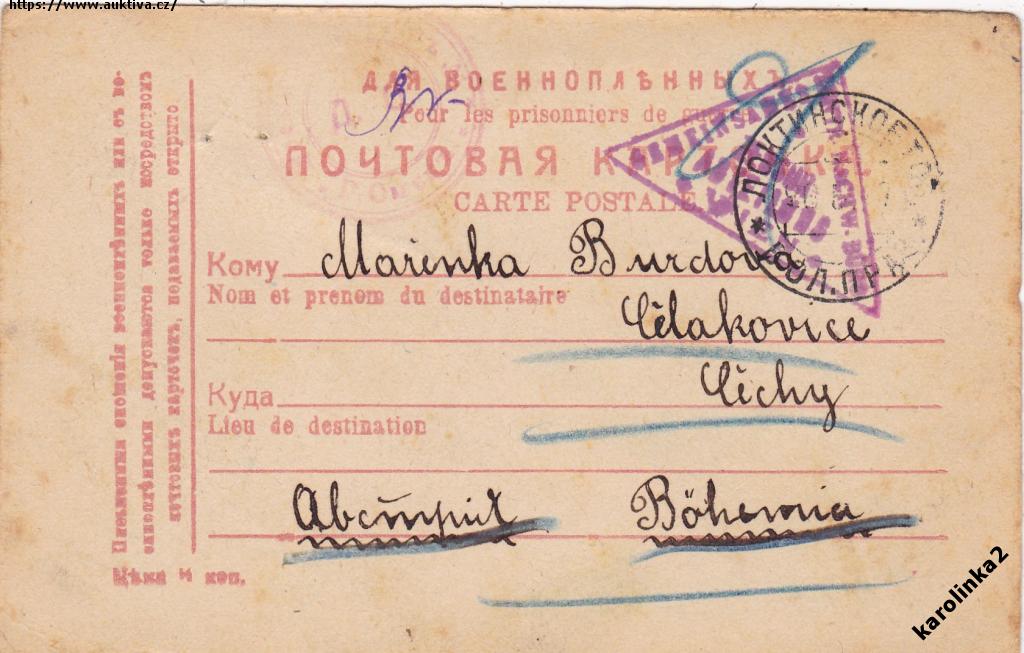 https://www.auktiva.cz/
ДЛЯ ВОЕННОПЛѢННЫХЪ
Pour les prisonniers de guerre
ПОЧТОВАЯ КАРТОЧКА
CARTE POSTALE
Кому Marenka Burdova
Nom et prenom du destinataire
Célakovice
Куда Céchy
Lieu de destination
Австрия Böhemia
Письменныя сношенія военноплѣнныхъ или съ во-
еннoплѣнными допускаются только посредствомъ
почтовыхъ карточекъ, подаваемыхъ открыто
Цѣна 1 коп.
ЛОКТИНСКОЕ
karolinka2